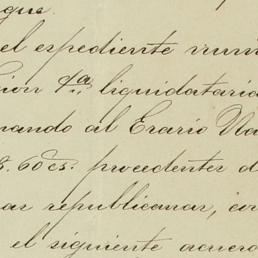 gue.
el espediente núm
cion 9a liquidataria
nando al Erario Na
s. 60 cs. procedentes d
as republicanas, con
el siguiente acuerd